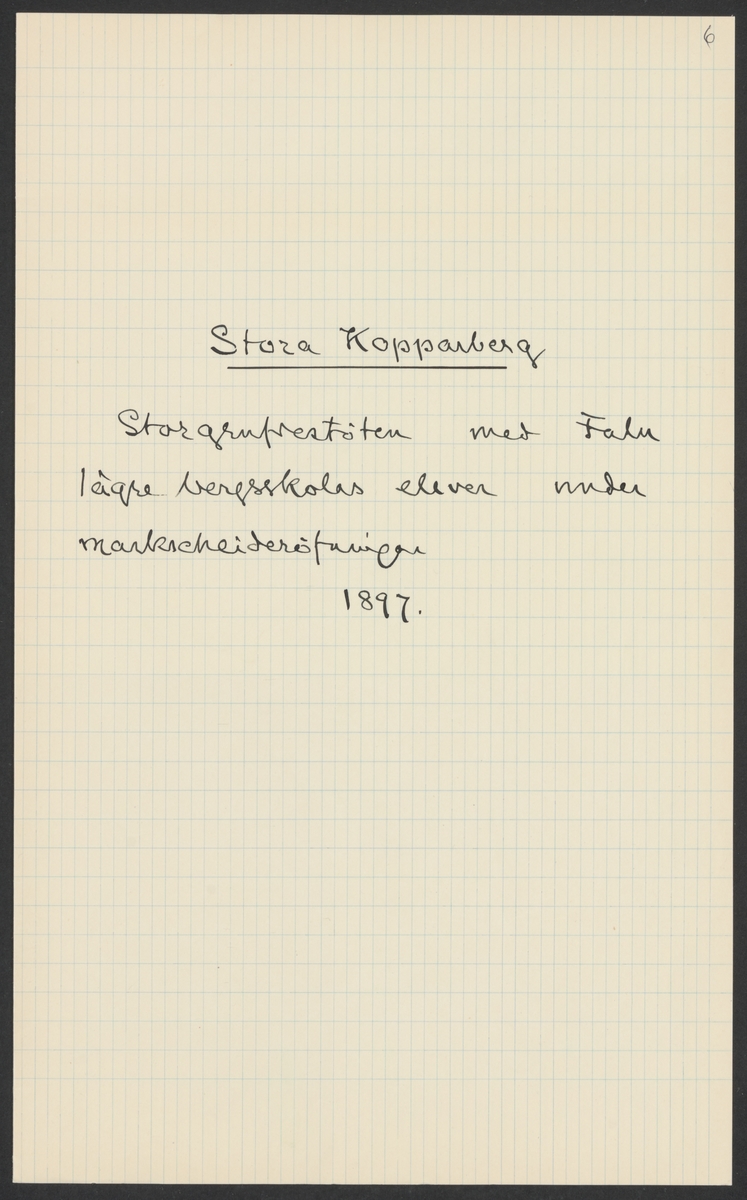 6
Stora Kopparberg
Storgrufvestöten med Falu
lägre bergsskolas elever under
markscheideröfningar
1897.